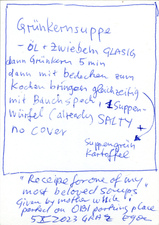 Grünkernsuppe
- ÖL + Zwiebeln GLASIG
dann Grünkern 5 min
dann mit bedecken zum
Kochen bringen gleichzeitig
mit Bauchspeck, + 1 Suppen-
Würfel (already SALTY)
no COVER
Suppengrün
Kartoffel
"Receipe for one of my
most beloved soups"
Given by mother while I
parked on OBI parking place
5 X 2023 GRAZ